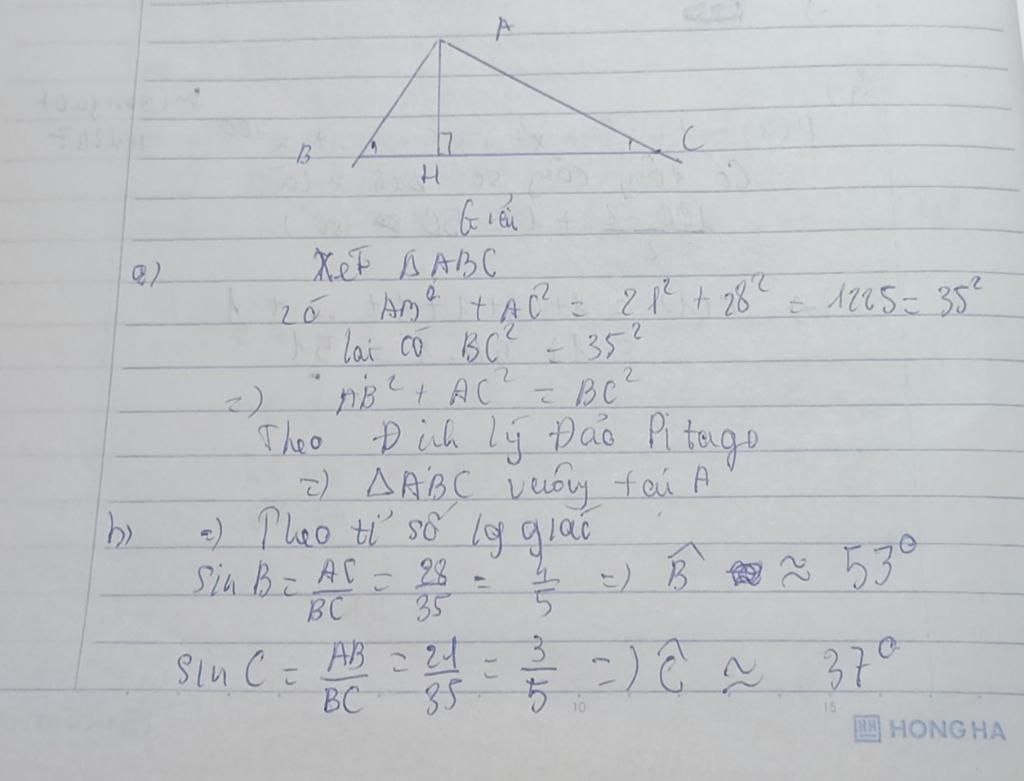 A
B
H
C
Giải
a) Xét ΔABC
có AB² + AC² = 21² + 28² = 1225 = 35²
lại có BC² = 35²
=) AB² + AC² = BC²
Theo Định lý Đảo Pitago
=) ΔABC vuông tại A
b) =) Theo tỉ số lg giác
Sin B = AC/BC = 28/35 = 4/5 =) B̂ ≈ 53°
Sin C = AB/BC = 21/35 = 3/5 =) Ĉ ≈ 37°
10 15
HONG HA